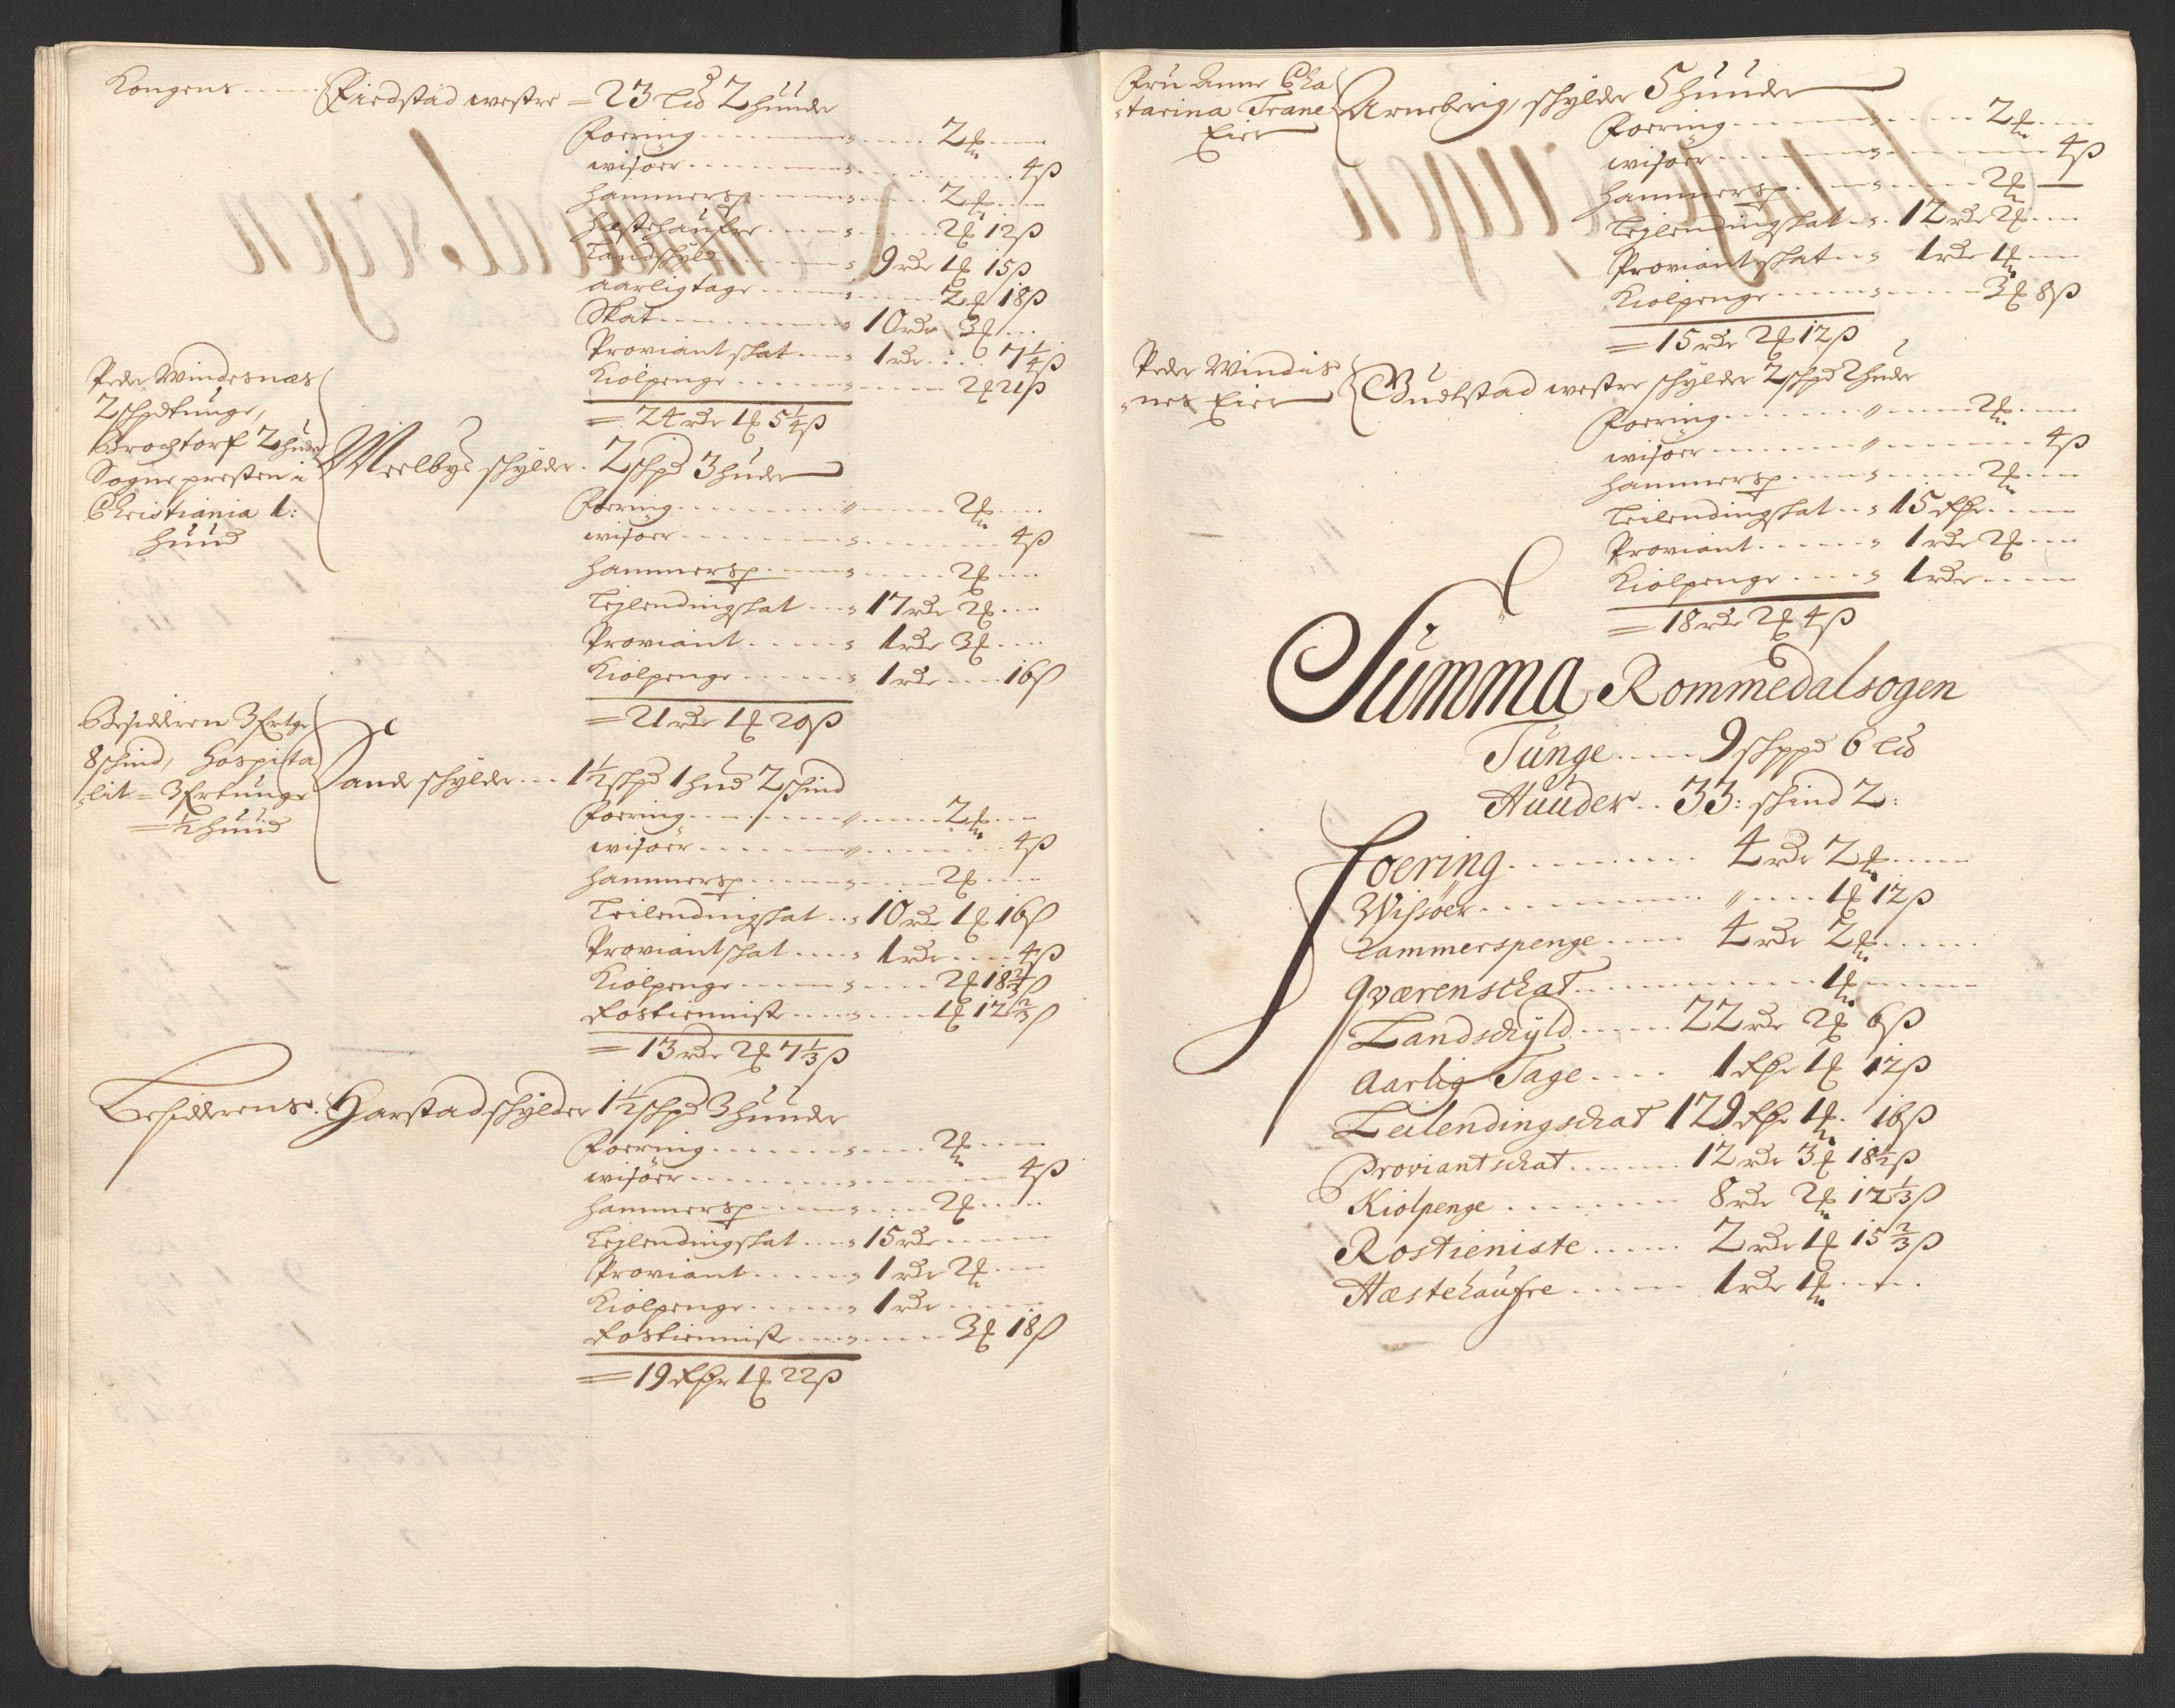 Kongens ---- Fierdstad westre = 23 Lid 2 hunde
Foering ---- 2 ₰
wisöer ---- 4 ß
hammersp ---- 2 ₰
hæstehaufre ---- 2 ₰ 12 ß
Landschyld ---- 9 rdr 1 ₰ 15 ß
aarligtage ---- 2 ₰ 18 ß
Skat ---- 10 rdr 3 ₰
Proviantskat ---- 1 rdr 7¼ ß
Kiolpenge ---- 2 ₰ 21 ß
= 24 rdr 1 ₰ 5¼ ß
Peder Windesnæs
2 schpd tunge,
Brochtorf 2 hude
Sognepresten i
Christiania 1:
huud
Meelbye schylder. 2 schpd 3 huder
Foering ---- 2 ₰
wisöer ---- 4 ß
hammersp ---- 2 ₰
Lejlendingskat ---- 17 rdr 2 ₰
Proviant ---- 1 rdr 3 ₰
Kiolpenge ---- 1 rdr 16 ß
= 21 rdr 1 ₰ 20 ß
Besidderen 3 Fertge
8 schind, Hospita
-lit = 3 Fertunge
= ½ huud
Sande schylder ---- 1½ schpd 1 hud 2 schind
Foering ---- 2 ₰
wisöer ---- 4 ß
hammersp ---- 2 ₰
Leilendingskat ---- 10 rdr 1 ₰ 16 ß
Proviantskat ---- 1 rdr 4 ß
Kiolpenge ---- 2 ₰ 18⅔ ß
Rostienniste ---- 1 ₰ 12⅔ ß
= 13 rdr 2 ₰ 7⅓ ß
Besidderens. Harstad schylder 1½ schpd 3 hunder
Foering ---- 2 ₰
wisöer ---- 4 ß
hammersp ---- 2 ₰
Lejlendingskat ---- 15 rdr
Proviant ---- 1 rdr 2 ₰
Kiolpenge ---- 1 rdr
Rostienniste ---- 3 ₰ 18 ß
= 19 Rdr 1 ₰ 22 ß
Fru Anne Cha
-tarina Trane
Eier
Arneberig, schylder 5 huuder
Foering ---- 2 ₰
wisöer ---- 4 ß
hammersp ---- 2 ₰
Lejlendingskat ---- 12 rdr 2 ₰
Proviantskat ---- 1 rdr 1 ₰
Kiolpenge ---- 3 ₰ 8 ß
= 15 rdr 2 ₰ 12 ß
Peder Windis
-nes Eier
Gudestad westre schylder 2 schpd 2 huder
Foering ---- 2 ₰
wisöer ---- 4 ß
hammersp ---- 2 ₰
Leilendingskat ---- 15 Rdr
Proviant ---- 1 rdr 2 ₰
Kiolpenge ---- 1 rdr
= 18 rdr 2 ₰ 4 ß
Summa Rommedalsogen
Tunge ---- 9 schppd 6 Lid
Huuder .. 33: skind 2:
Foering ---- 4 rdr 2 ₰
Wissöer ---- 1 ₰ 12 ß
Hammerspenge ---- 4 rdr 2 ₰
Qværenschat ---- 1 ₰
Landschyld ---- 22 rdr 2 ₰ 6 ß
Aarlig Tage ---- 1 Rdr 1 ₰ 12 ß
Leilendingschat 129 Rdr 1 ₰. 16 ß
Proviantschat ---- 12 rdr 3 ₰ 18½ ß
Kiolpenge ---- 8 rdr 2 ₰ 12⅓ ß
Rostieniste ---- 2 rdr 1 ₰ 15⅔ ß
Hæstehaufre ---- 1 rdr 1 ₰